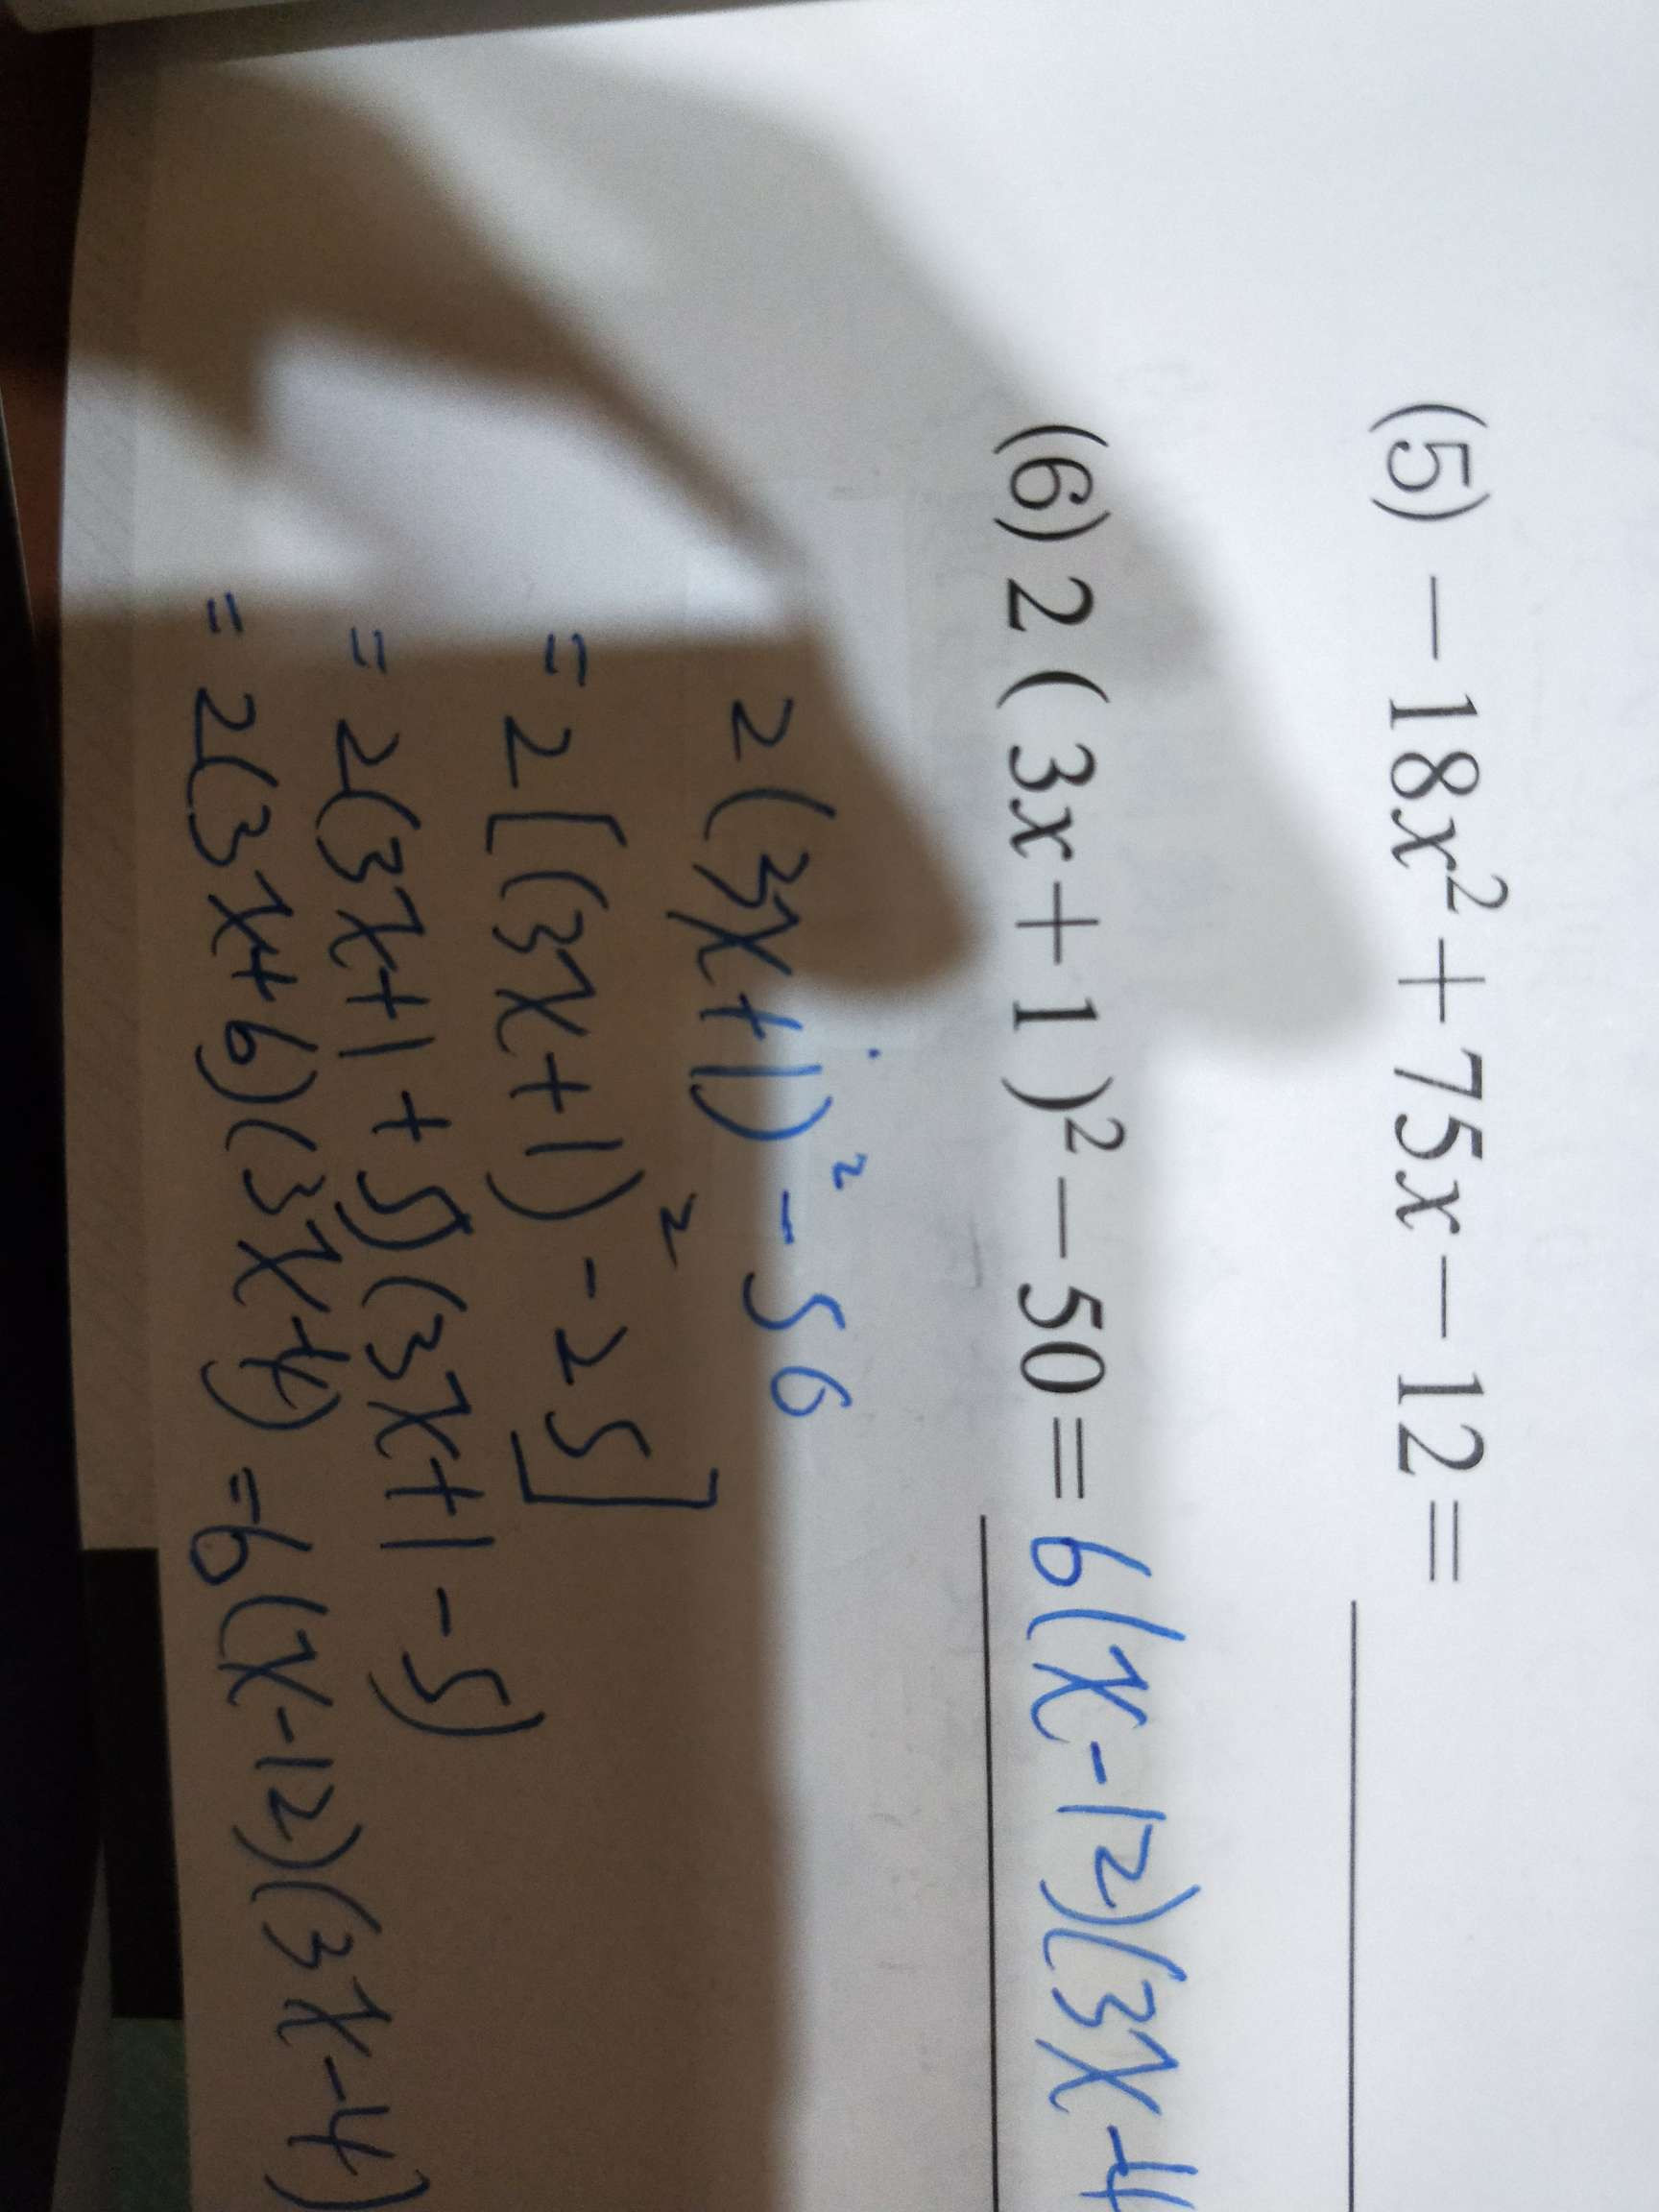 (5) −18x²+75x−12=
(6) 2(3x+1)²−50= 6(x-12)(3x-4
2(3x+1)²-56
=2[(3x+1)²-25]
=2(3x+1+5)(3x+1-5)
=2(3x+6)(3x-4)=6(x-12)(3x-4)